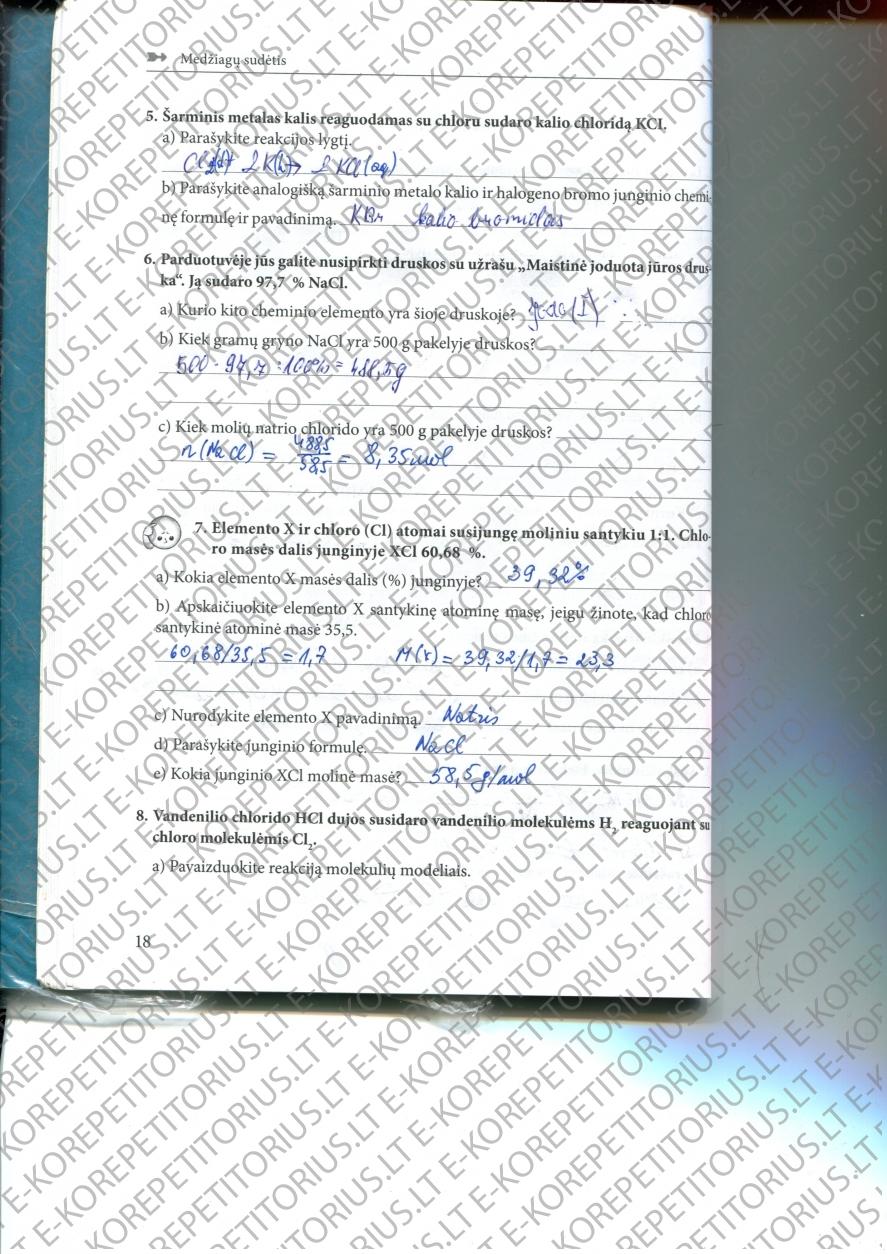 Medžiagų sudėtis
5. Šarminis metalas kalis reaguodamas su chloru sudaro kalio chloridą KCl.
a) Parašykite reakcijos lygtį.
2K(k) → 2KCl(aq)
b) Parašykite analogišką šarminio metalo kalio ir halogeno bromo junginio chemi-
nę formulę ir pavadinimą. KBr kalio bromidas
6. Parduotuvėje jūs galite nusipirkti druskos su užrašu „Maistinė joduota jūros drus-
ka“. Ją sudaro 97,7 % NaCl.
a) Kurio kito cheminio elemento yra šioje druskoje? (I)
b) Kiek gramų gryno NaCl yra 500 g pakelyje druskos?
500 · 97,7 : 100% = 488,5g
c) Kiek molių natrio chlorido yra 500 g pakelyje druskos?
n(NaCl) = 488,5/58,5 = 8,35mol
7. Elemento X ir chloro (Cl) atomai susijungę moliniu santykiu 1:1. Chlo-
ro masės dalis junginyje XCl 60,68 %.
a) Kokia elemento X masės dalis (%) junginyje? 39,32%
b) Apskaičiuokite elemento X santykinę atominę masę, jeigu žinote, kad chloro
santykinė atominė masė 35,5.
60,68/35,5 = 1,7 M(x) = 39,32/1,7 = 23,3
c) Nurodykite elemento X pavadinimą. Natris
d) Parašykite junginio formulę. NaCl
e) Kokia junginio XCl molinė masė? 58,5g/mol
8. Vandenilio chlorido HCl dujos susidaro vandenilio molekulėms H₂ reaguojant su
chloro molekulėmis Cl₂.
a) Pavaizduokite reakciją molekulių modeliais.
18
E-KOREPETITORIUS.LT